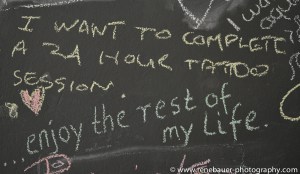 I WANT TO COMPLETE
A 24 HOUR TATTOO
SESSION
...enjoy the rest of
my life.
www.renebauer-photography.com